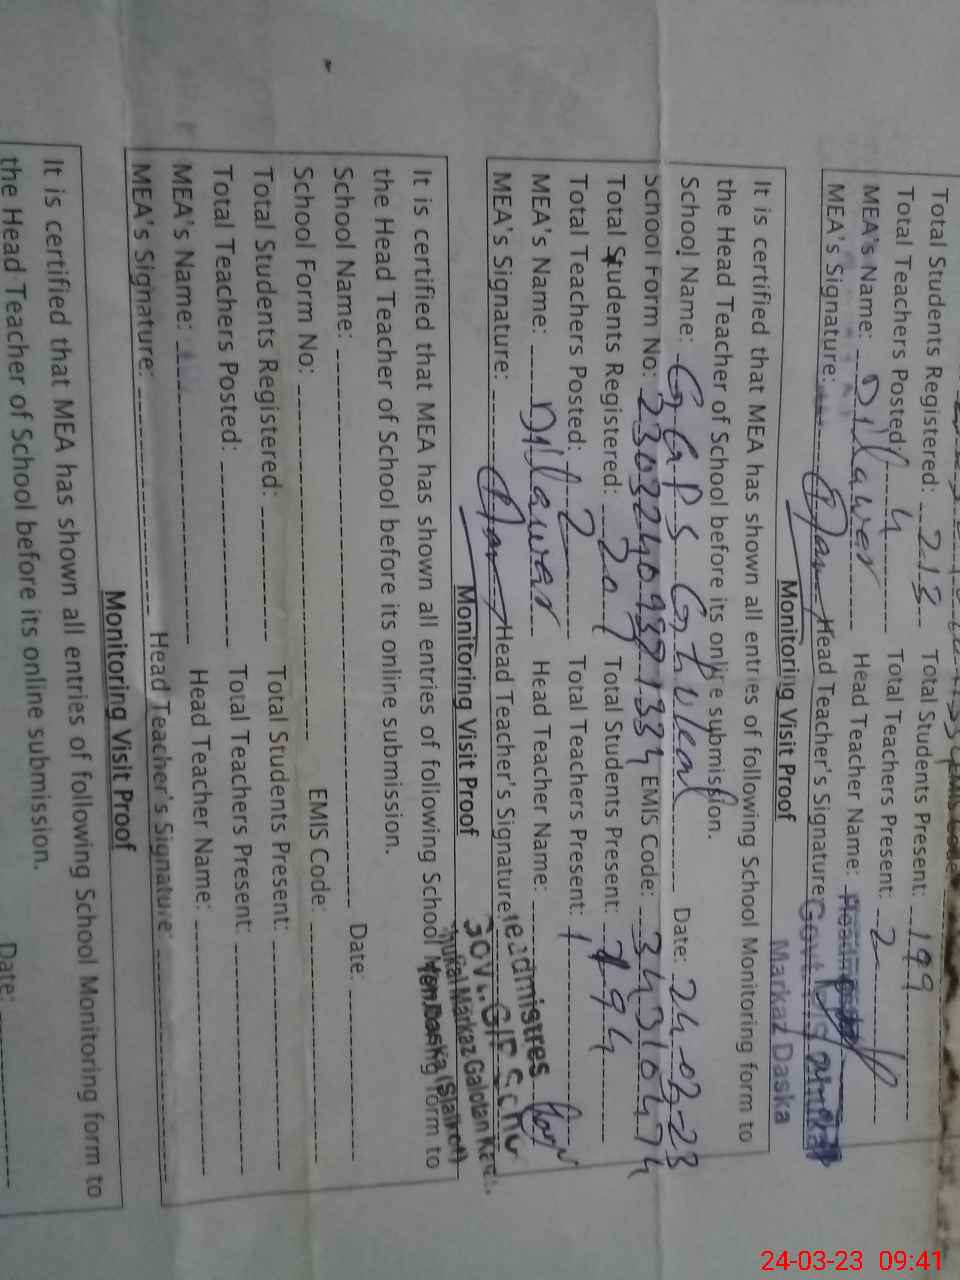 Total Students Registered: 213 Total Students Present: 199
Total Teachers Posted: 4 Total Teachers Present: 2
MEA's Name: Dilawer Head Teacher Name:
MEA's Signature: Head Teacher's Signature Govt.
Markaz Daska
Monitoring Visit Proof
It is certified that MEA has shown all entries of following School Monitoring form to
the Head Teacher of School before its online submission.
School Name: GGPS Date: 24-03-23
School Form No: EMIS Code: 34310474
Total Students Registered: 201 Total Students Present: 194
Total Teachers Posted: 2 Total Teachers Present: 1
MEA's Name: Dilawer Head Teacher Name:
MEA's Signature: Head Teacher's Signature:
Markaz Galotian
Daska (Sialkot)
Monitoring Visit Proof
It is certified that MEA has shown all entries of following School Monitoring form to
the Head Teacher of School before its online submission.
School Name: Date:
School Form No: EMIS Code:
Total Students Registered: Total Students Present:
Total Teachers Posted: Total Teachers Present:
MEA's Name: Head Teacher Name:
MEA's Signature: Head Teacher's Signature:
Monitoring Visit Proof
It is certified that MEA has shown all entries of following School Monitoring form to
the Head Teacher of School before its online submission.
Date:
24-03-23 09:41